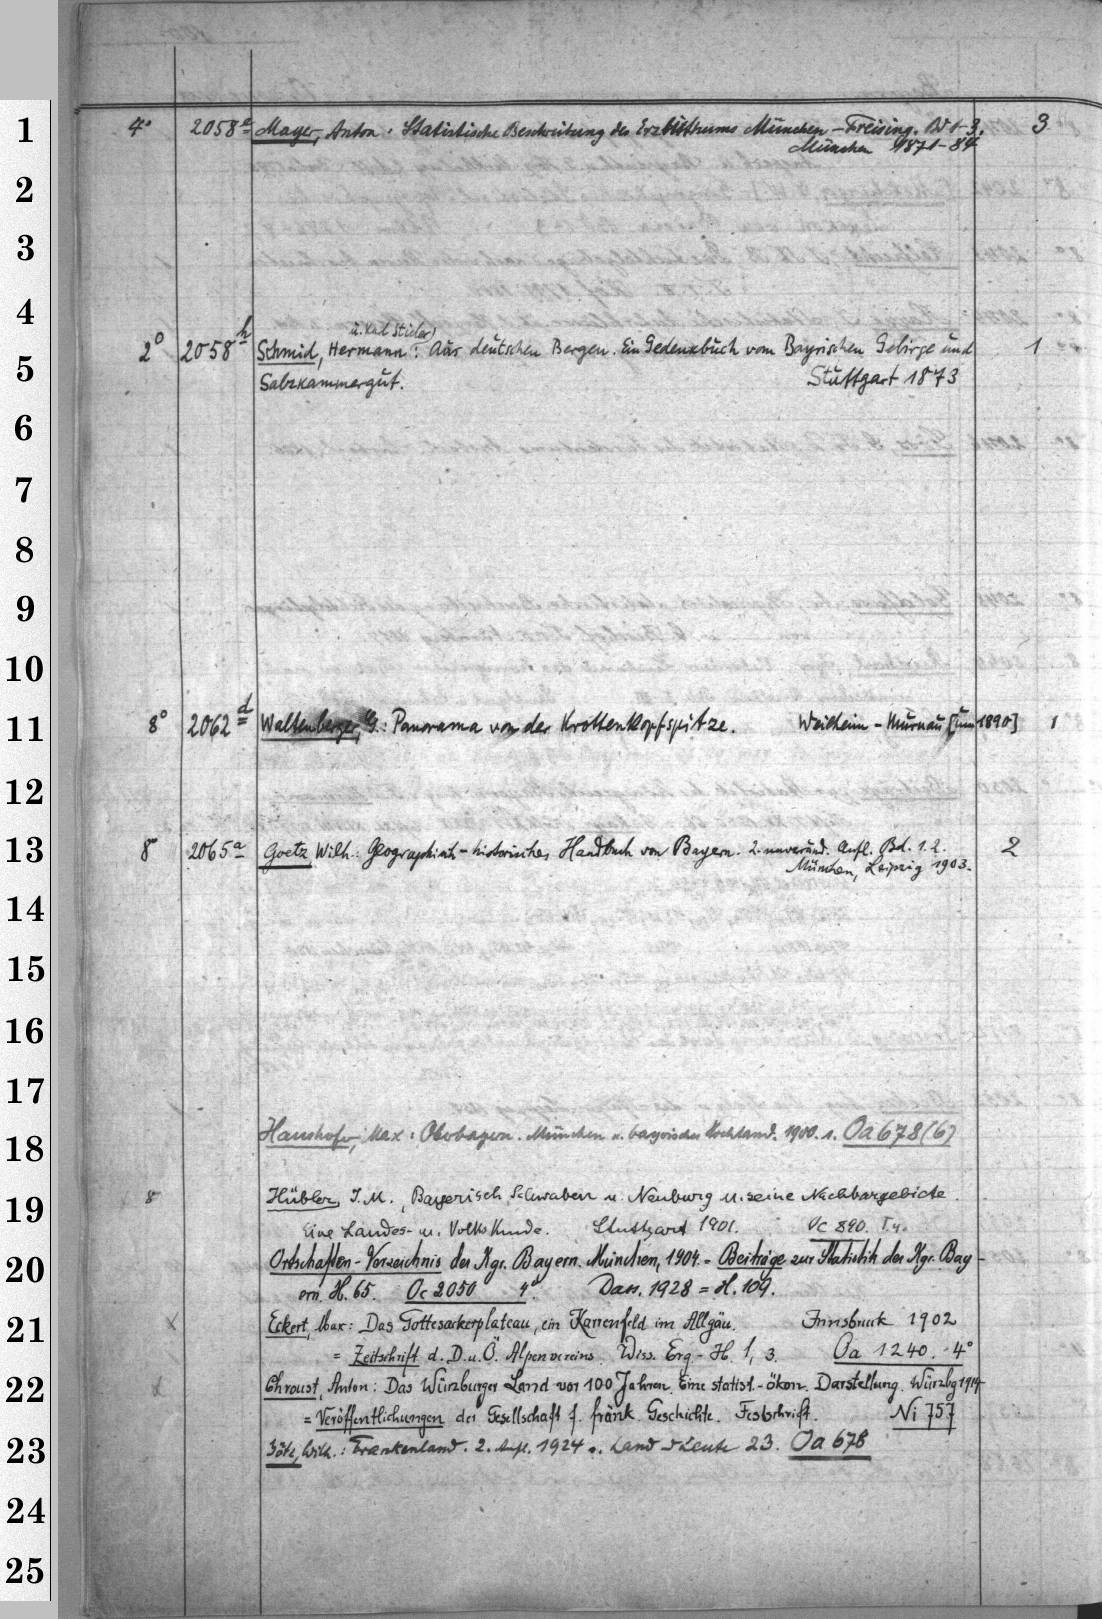 1
4° 2058e Mayer, Anton: Statistische Beschreibung des Erzbisthums München-Freising. Bd 1-3. 3
München 1871-84
2
3
4
u. Karl Stieler)
2° 2058h Schmid, Hermann: Aus deutschen Bergen. Ein Gedenkbuch vom Bayrischen Gebirge und 1
5
Salzkammergut. Stuttgart 1873
6
7
8
9
10
11
8° 2062d Waltenberger, G.: Panorama von der Krottenkopfspitze. Weilheim-Murnau [um 1890] 1
12
13
8° 2065a Goetz, Wilh.: Geographisch-historisches Handbuch von Bayern. 2. unveränd. Aufl. Bd. 1.2. 2
München, Leipzig 1903.
14
15
16
17
18
Haushofer, Max: Oberbayern. München u. bayrisches Hochland. 1900. s. Oa 678 (6)
19
8 Hübler, J. M., Bayerisch Schwaben u. Neuburg u. seine Nachbargebiete.
Eine Landes- u. Volkskunde. Stuttgart 1901. Oc 890.
20
Ortschaften-Verzeichnis des Kgr. Bayern. München, 1904. = Beiträge zur Statistik des Kgr. Bay-
ern. H. 65. Oc 2050 4°. Dass. 1928 = H. 109.
21
x Eckert, Max: Das Gottesackerplateau, ein Karrenfeld im Allgäu. Innsbruck 1902
= Zeitschrift d. D. u. Ö. Alpenvereins. Wiss. Erg-H. 1, 3. Oa 1240. 4°
22
x Chroust, Anton: Das Würzburger Land vor 100 Jahren. Eine statist.-ökon. Darstellung. Würzbg 1914
= Veröffentlichungen der Gesellschaft f. fränk. Geschichte. Festschrift. Ni 757
23
Götz, Wilh.: Frankenland. 2. Aufl. 1924. Land u Leute 23. Oa 678
24
25